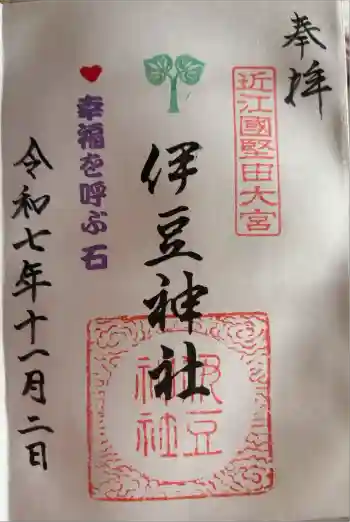 奉拝
近江國堅田大宮
伊豆神社
伊豆神社
幸福を呼ぶ石
令和七年十一月二日